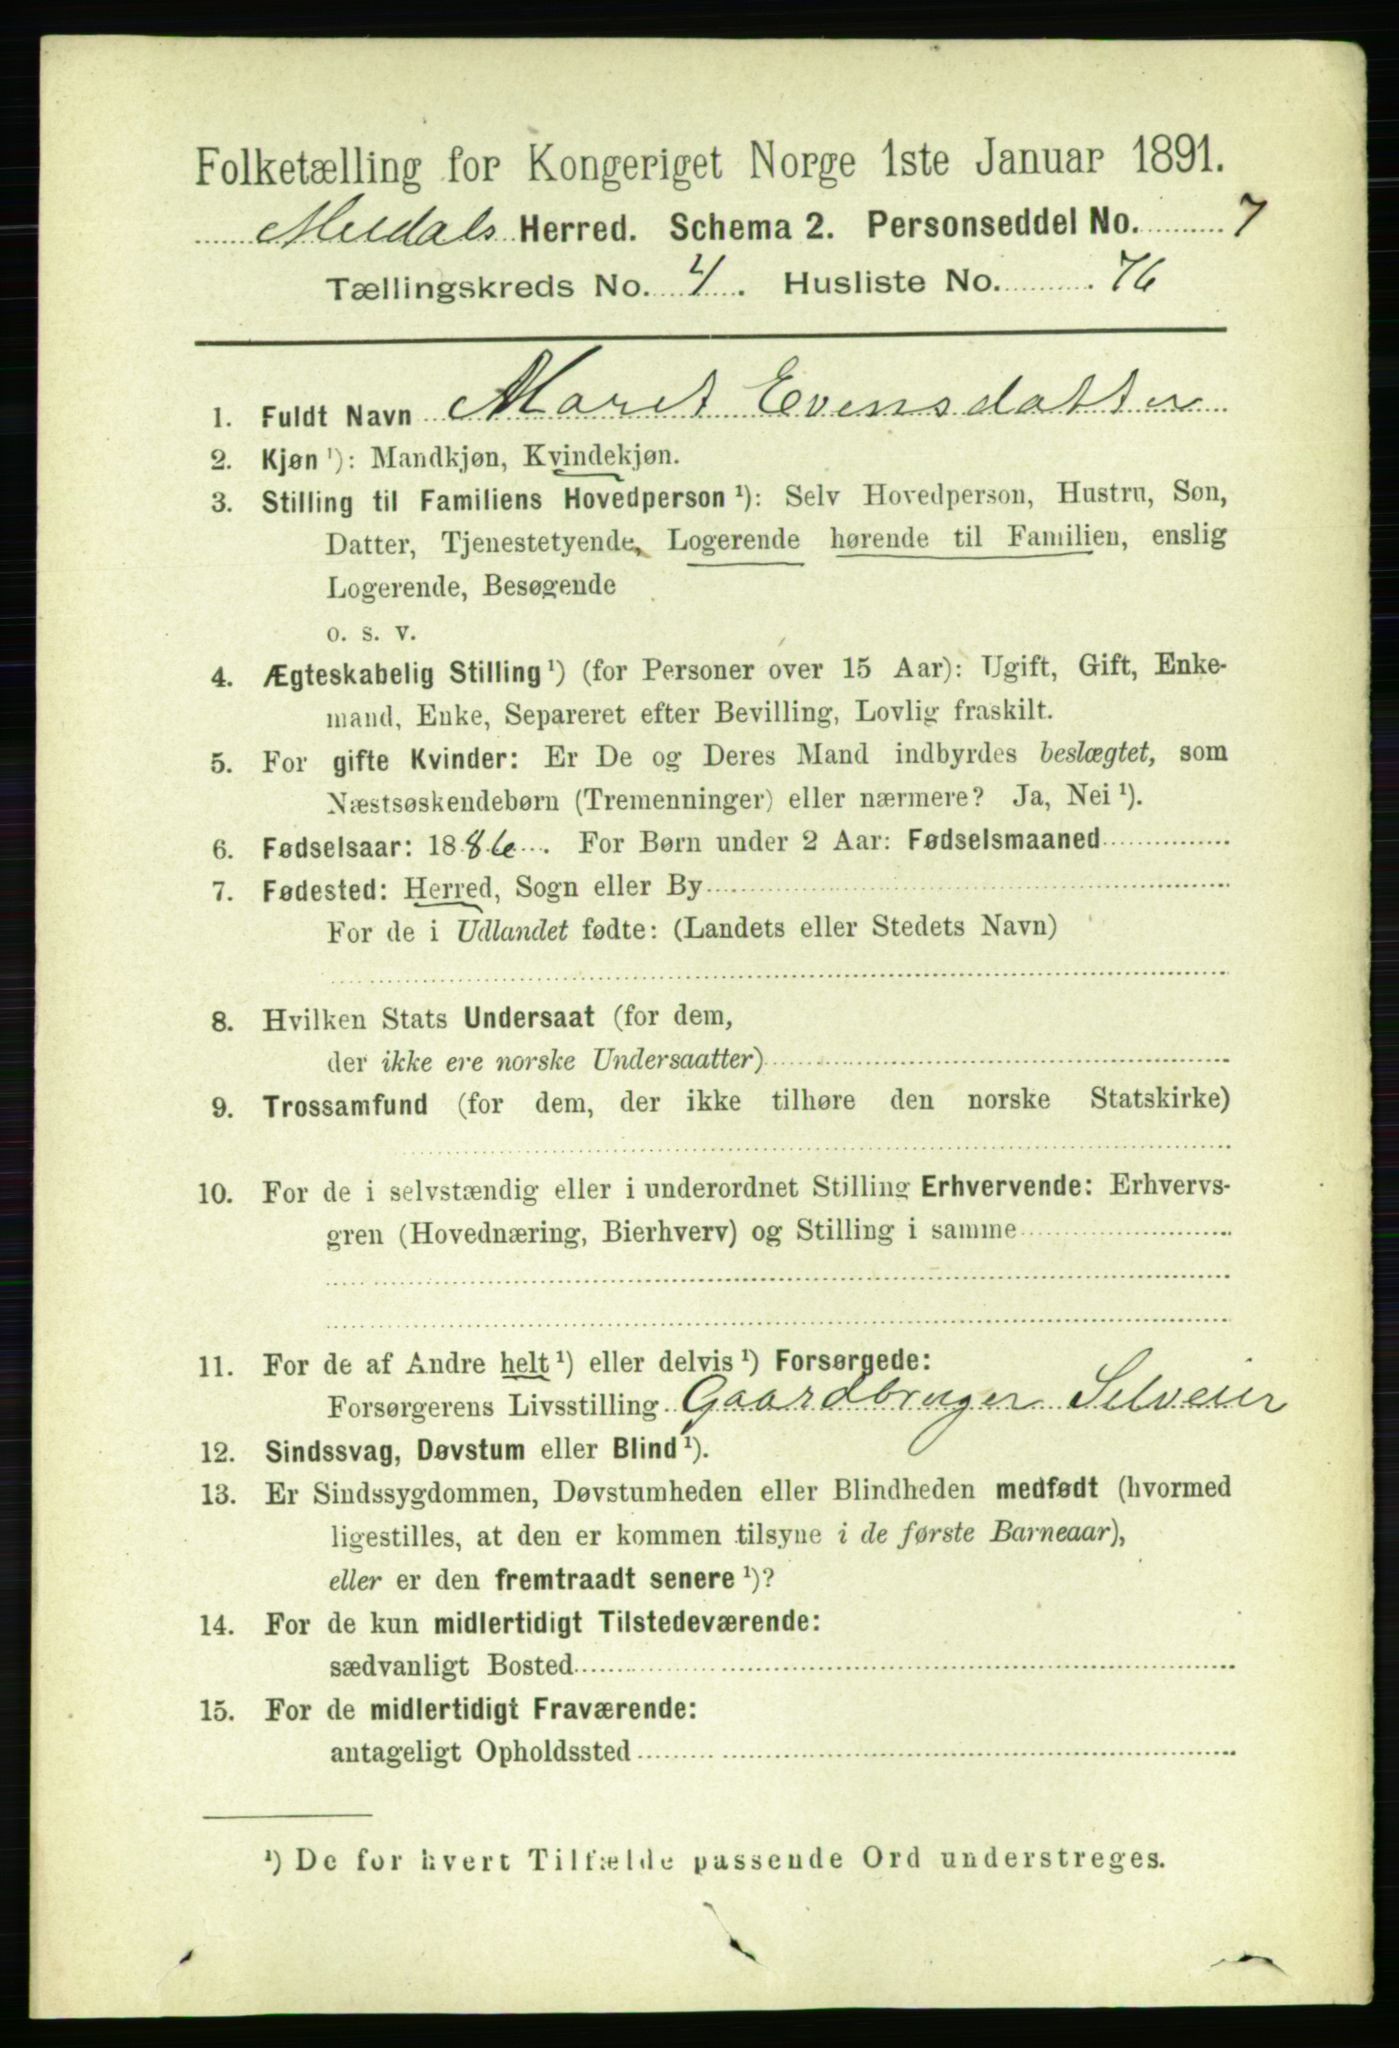 Folketælling for Kongeriget Norge 1ste Januar 1891.
Meldals Herred. Schema 2. Personseddel No. 7
Tællingskreds No. 4. Husliste No. 76
1. Fuldt Navn Maret Evensdatter
2. Kjøn ¹): Mandkjøn, Kvindekjøn.
3. Stilling til Familiens Hovedperson ¹): Selv Hovedperson, Hustru, Søn,
Datter, Tjenestetyende, Logerende hørende til Familien, enslig
Logerende, Besøgende
o. s. v.
4. Ægteskabelig Stilling ¹) (for Personer over 15 Aar): Ugift, Gift, Enke-
mand, Enke, Separeret efter Bevilling, Lovlig fraskilt.
5. For gifte Kvinder: Er De og Deres Mand indbyrdes beslægtet, som
Næstsøskendebørn (Tremenninger) eller nærmere? Ja, Nei ¹).
6. Fødselsaar: 1886. For Børn under 2 Aar: Fødselsmaaned
7. Fødested: Herred, Sogn eller By
For de i Udlandet fødte: (Landets eller Stedets Navn)
8. Hvilken Stats Undersaat (for dem,
der ikke ere norske Undersaatter)
9. Trossamfund (for dem, der ikke tilhøre den norske Statskirke)
10. For de i selvstændig eller i underordnet Stilling Erhvervende: Erhvervs-
gren (Hovednæring, Bierhverv) og Stilling i samme
11. For de af Andre helt ¹) eller delvis ¹) Forsørgede:
Forsørgerens Livsstilling Gaardbruger Selveier
12. Sindssvag, Døvstum eller Blind ¹).
13. Er Sindssygdommen, Døvstumheden eller Blindheden medfødt (hvormed
ligestilles, at den er kommen tilsyne i de første Barneaar),
eller er den fremtraadt senere ¹)?
14. For de kun midlertidigt Tilstedeværende:
sædvanligt Bosted
15. For de midlertidigt Fraværende:
antageligt Opholdssted
¹) De for hvert Tilfælde passende Ord understreges.